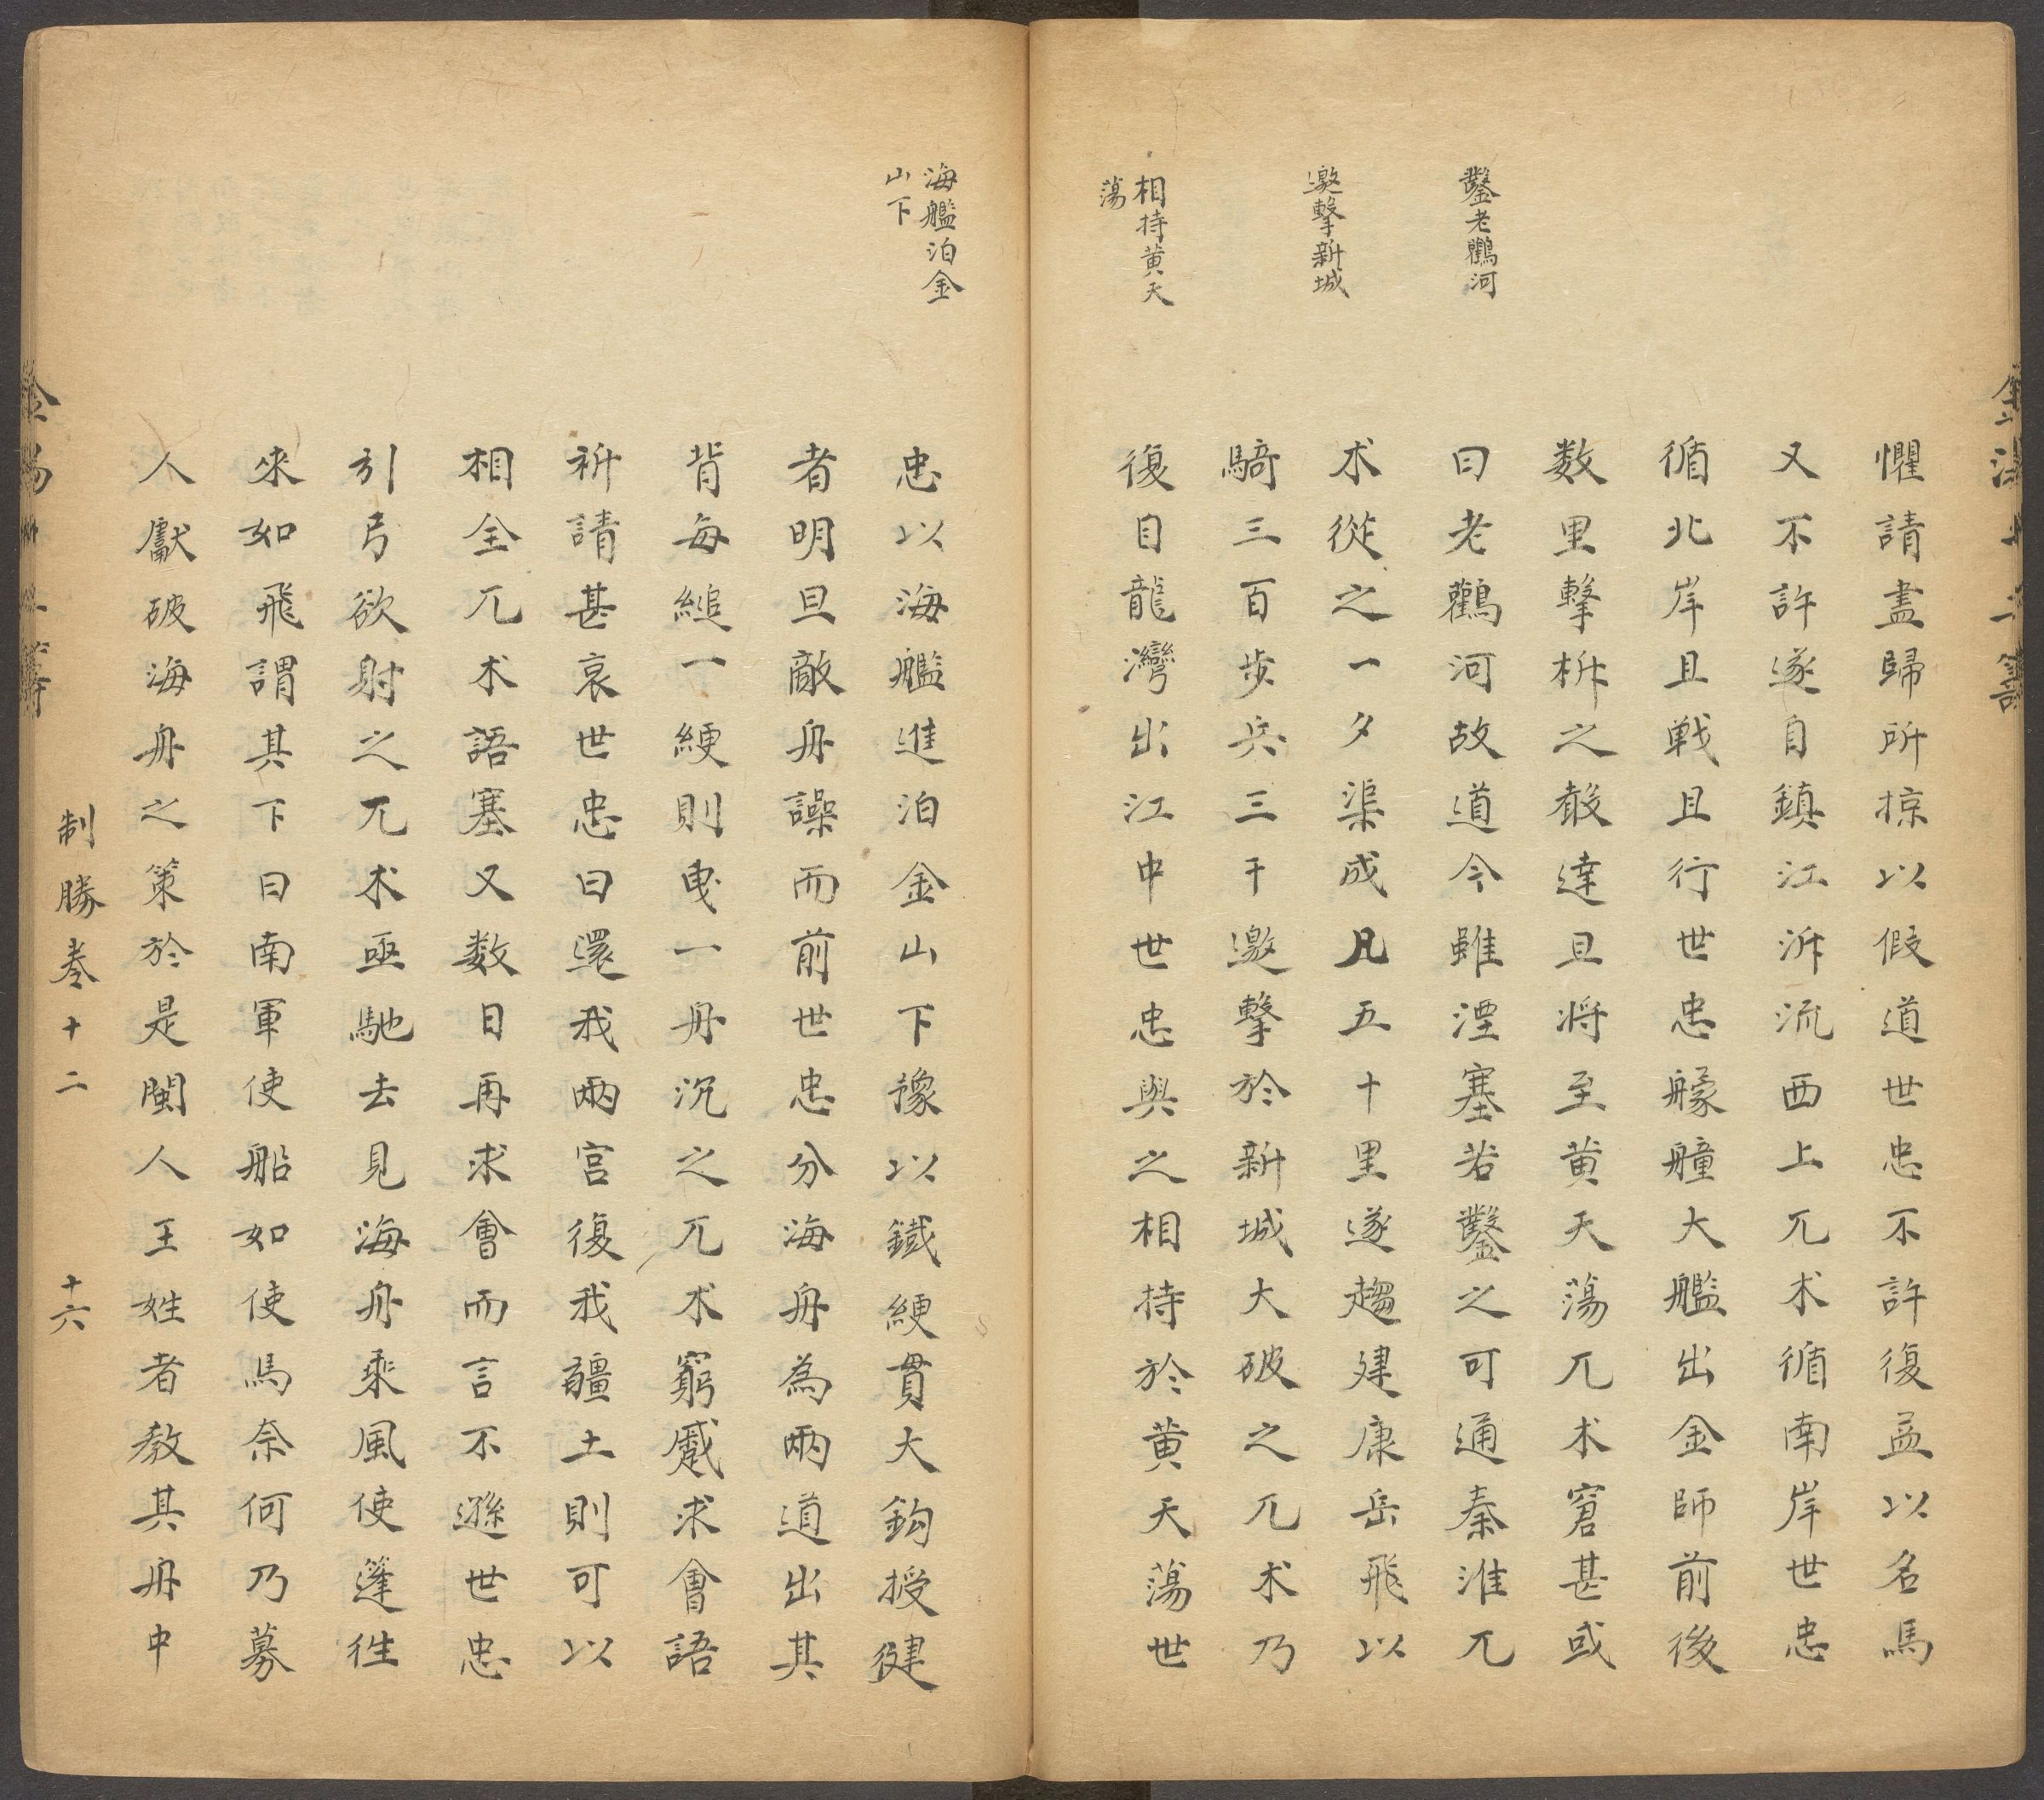 鑿老鸛河
邀擊新城
相持黄天
蕩
懼請盡歸所掠以假道世忠不許復益以名馬
又不許遂自鎮江泝流西上兀朮循南岸世忠
循北岸且戰且行世忠艨艟大艦出金師前後
数里擊柝之聲達旦将至黄天蕩兀朮窘甚或
曰老鸛河故道今雖湮塞若鑿之可通秦淮兀
朮從之一夕渠成凡五十里遂趨建康岳飛以
騎三百歩兵三千邀擊於新城大破之兀朮乃
復自龍灣出江中世忠與之相持於黄天蕩世
海艦泊金
山下
忠以海艦進泊金山下豫以鐵綆貫大鈎授健
者明旦敵舟譟而前世忠分海舟為兩道出其
背每縋一綆則曳一舟沉之兀朮窮蹙求會語
祈請甚哀世忠曰還我兩宫復我疆土則可以
相全兀朮語塞又数日再求會而言不遜世忠
引弓欲射之兀朮亟馳去見海舟乘風使篷徃
來如飛謂其下曰南軍使船如使馬奈何乃募
人獻破海舟之策於是閩人王姓者教其舟中
制勝卷十二
十六